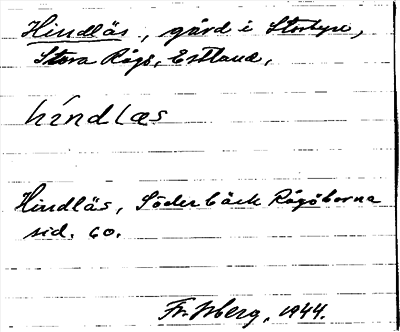 Hindläs, gård i Storbyn,
Stora Rågö, Estland,
híndlæs
Hindläs, Söderbäck Rågöborna
sid. 60.
1944.